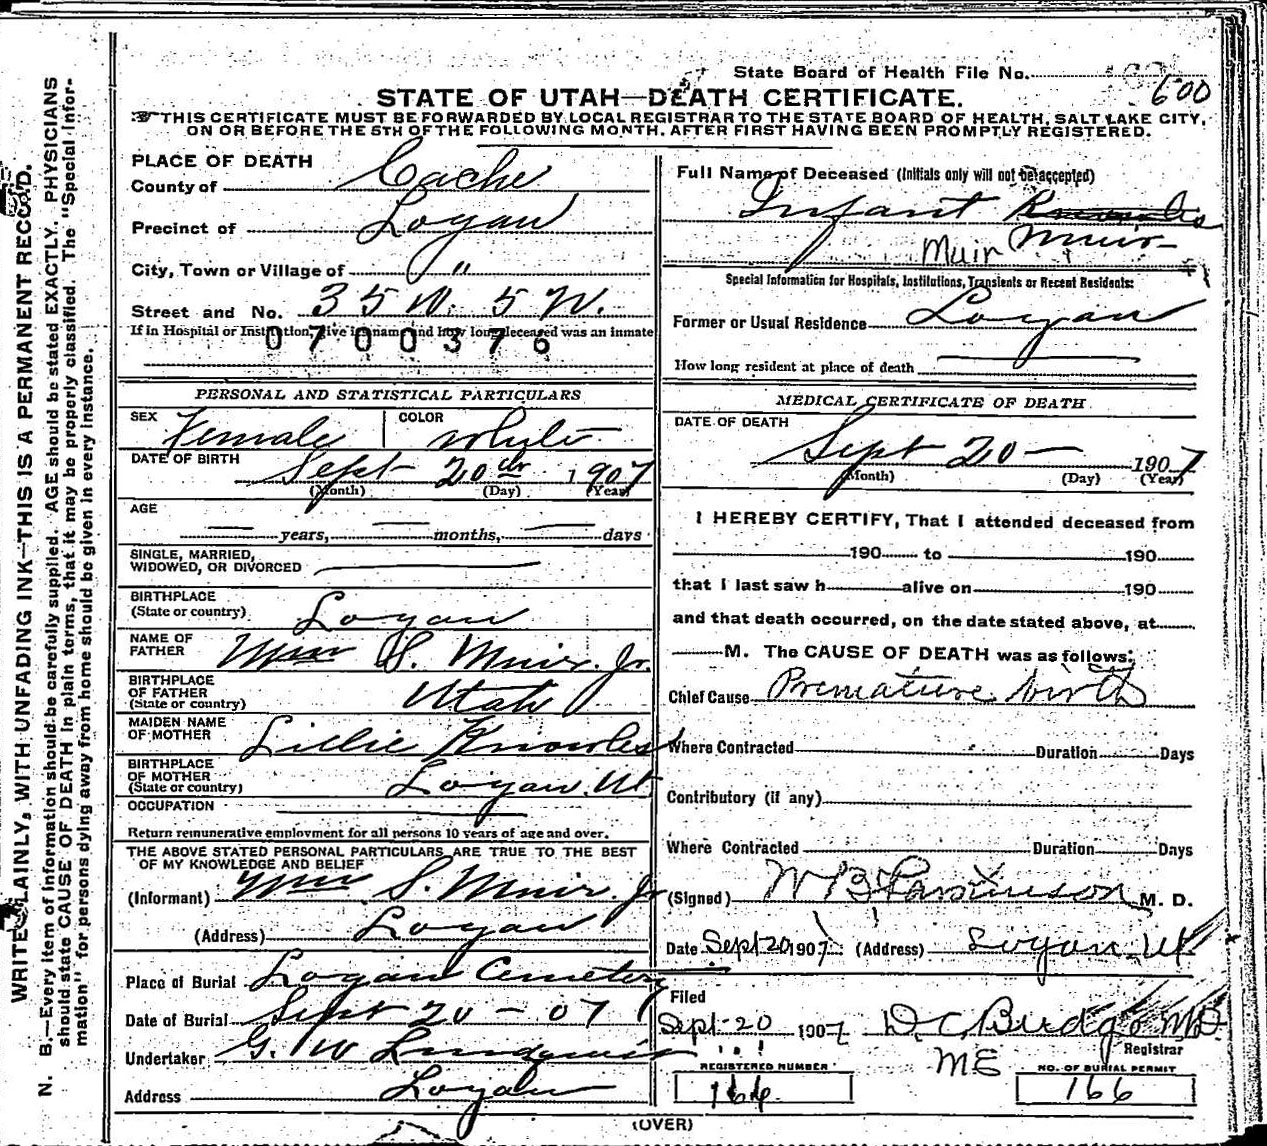 State Board of Health File No.
600
STATE OF UTAH—DEATH CERTIFICATE.
THIS CERTIFICATE MUST BE FORWARDED BY LOCAL REGISTRAR TO THE STATE BOARD OF HEALTH, SALT LAKE CITY,
ON OR BEFORE THE 5TH OF THE FOLLOWING MONTH. AFTER FIRST HAVING BEEN PROMPTLY REGISTERED.
WRITE PLAINLY, WITH UNFADING INK—THIS IS A PERMANENT RECORD.
N. B.—Every item of information should be carefully supplied. AGE should be stated EXACTLY. PHYSICIANS
should state CAUSE OF DEATH in plain terms, that it may be properly classified. The "Special Infor-
mation" for persons dying away from home should be given in every instance.
PLACE OF DEATH
County of Cache
Precinct of Logan
City, Town or Village of "
Street and No. 35 W. 5 W.
If in Hospital or Institution, give its name and how long deceased was an inmate
0700376
PERSONAL AND STATISTICAL PARTICULARS
SEX Female COLOR White
DATE OF BIRTH Sept 20th 1907
(Month) (Day) (Year)
AGE
years, months, days
SINGLE, MARRIED,
WIDOWED, OR DIVORCED
BIRTHPLACE
(State or country) Logan
NAME OF
FATHER Wm S. Muir. Jr.
BIRTHPLACE
OF FATHER
(State or country) Utah
MAIDEN NAME
OF MOTHER Lillie Knowles
BIRTHPLACE
OF MOTHER
(State or country) Logan, Ut
OCCUPATION
Return remunerative employment for all persons 10 years of age and over.
THE ABOVE STATED PERSONAL PARTICULARS ARE TRUE TO THE BEST
OF MY KNOWLEDGE AND BELIEF
(Informant) Wm S. Muir. Jr
(Address) Logan
Place of Burial Logan Cemetery
Date of Burial Sept 20 - 07
Undertaker G. W. Lindquist
Address Logan
Full Name of Deceased (Initials only will not be accepted)
Infant Knowles
Muir Muir
Special Information for Hospitals, Institutions, Transients or Recent Residents:
Former or Usual Residence Logan
How long resident at place of death
MEDICAL CERTIFICATE OF DEATH
DATE OF DEATH
Sept 20 — 1907
(Month) (Day) (Year)
I HEREBY CERTIFY, That I attended deceased from
190 to 190
that I last saw h alive on 190
and that death occurred, on the date stated above, at
M. The CAUSE OF DEATH was as follows:
Chief Cause Premature birth
Where Contracted Duration Days
Contributory (if any)
Where Contracted Duration Days
(Signed) W B Parkinson M. D.
Date Sept 20 1907 (Address) Logan Ut
Filed
Sept 20 1907 D C Budge MD
Registrar
ME
REGISTERED NUMBER
166
NO. OF BURIAL PERMIT
166
(OVER)